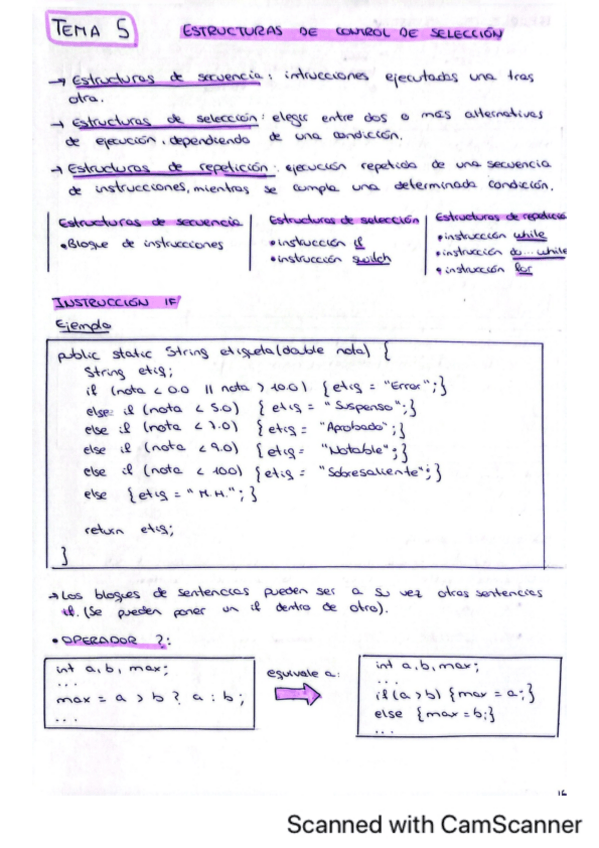 TEMA 5
ESTRUCTURAS DE CONTROL DE SELECCIÓN
→ Estructuras de secuencia: intrucciones ejecutadas una tras
otra.
→ Estructuras de selección: elegir entre dos o más alternativas
de ejecución, dependiendo de una condición.
→ Estructuras de repetición: ejecución repetida de una secuencia
de instrucciones, mientras se cumpla una determinada condición.
Estructuras de secuencia
• Bloque de instrucciones
Estructuras de selección
• instrucción if
• instrucción switch
Estructuras de repetición
• instrucción while
• instrucción do...while
• instrucción for
INSTRUCCIÓN IF
Ejemplo
public static String etiqueta(double nota) {
String etiq;
if (nota < 0.0 || nota > 10.0) {etiq = "Error";}
else if (nota < 5.0) {etiq = "Suspenso";}
else if (nota < 7.0) {etiq = "Aprobado";}
else if (nota < 9.0) {etiq = "Notable";}
else if (nota < 10.0) {etiq = "Sobresaliente";}
else {etiq = "M.H."; }
return etiq;
}
→ Los bloques de sentencias pueden ser a su vez otras sentencias
if. (Se pueden poner un if dentro de otro).
• OPERADOR ?:
int a, b, max;
...
max = a > b ? a : b;
...
equivale a:
int a, b, max;
...
if (a > b) {max = a;}
else {max = b;}
...
16
Scanned with CamScanner